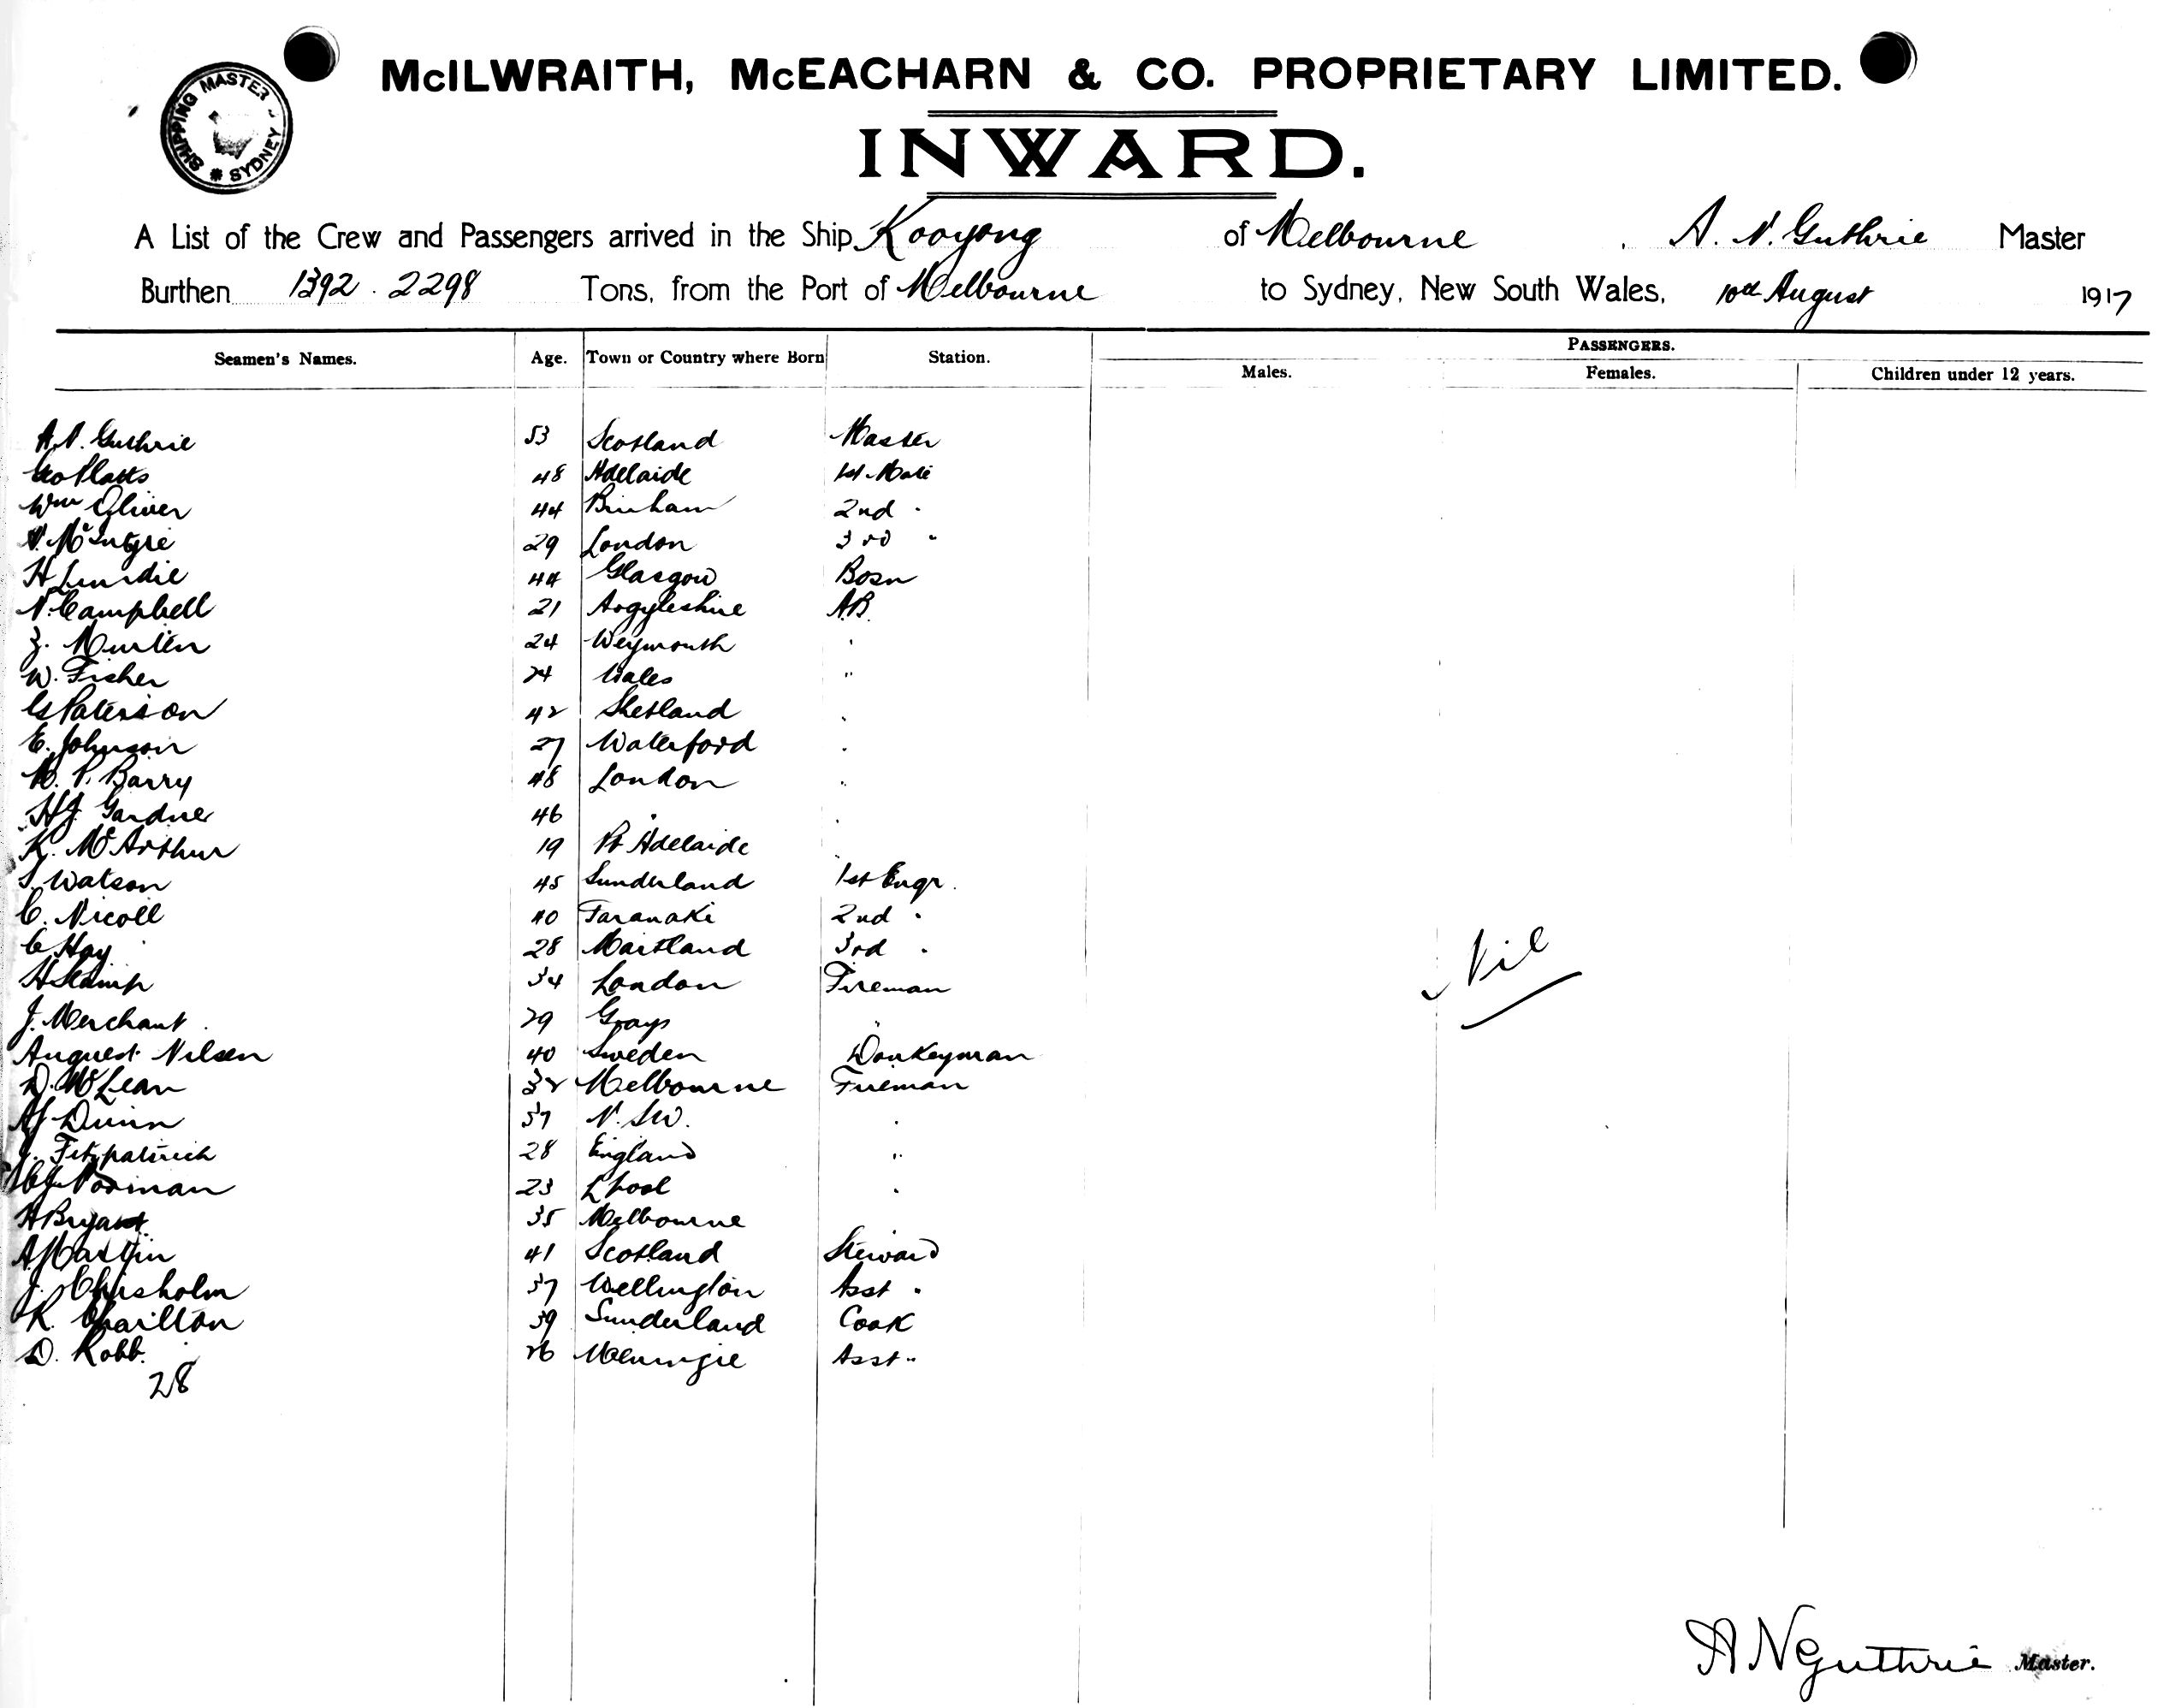 McILWRAITH, McEACHARN & CO. PROPRIETARY LIMITED.
SHIPPING MASTER SYDNEY
INWARD.
A List of the Crew and Passengers arrived in the Ship Kooyong of Melbourne, A. N. Guthrie Master
Burthen 1392 . 2298 Tons, from the Port of Melbourne to Sydney, New South Wales, 10th August 1917
Seamen's Names. Age. Town or Country where Born Station. PASSENGERS.
Males. Females. Children under 12 years.
A. N. Guthrie 53 Scotland Master
Geo Platts 48 Adelaide 1st Mate
Wm Oliver 44 2nd "
N. McIntyre 29 London 3rd "
H Lundie 44 Glasgow Bosn
N. Campbell 21 Argyleshire AB.
24 Weymouth "
W. Fisher 24 Wales "
G Paterson 42 Shetland "
E. Johnson 27 Waterford "
P. Barry 48 London "
HJ Gardner 46 " "
K. McArthur 19 Pt Adelaide "
Watson 45 Sunderland 1st Engr.
C. Nicoll 40 Taranaki 2nd "
C Hay 28 Maitland 3rd "
H Stamp 34 London Fireman
J. Merchant 29 Grays "
August Nilsen 40 Sweden Donkeyman
D. McLean 32 Melbourne Fireman
AJ Dunn 37 N.S.W. "
J. Fitzpatrick 28 England "
Norman 23 L'pool "
H Bryant 35 Melbourne
A Martin 41 Scotland Steward
J. Chisholm 37 Wellington Asst "
R. Charlton 39 Sunderland Cook
D. Robb. 26 Meningie Asst "
28
Nil
A N Guthrie Master.